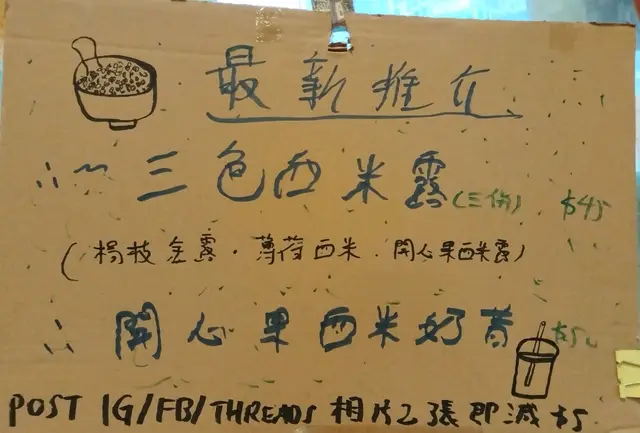 最新推介
三色西米露(三併) $45
(楊枝金露．薄荷西米．開心果西米露)
開心果西米奶昔
POST IG/FB/THREADS 相片2張即減$5